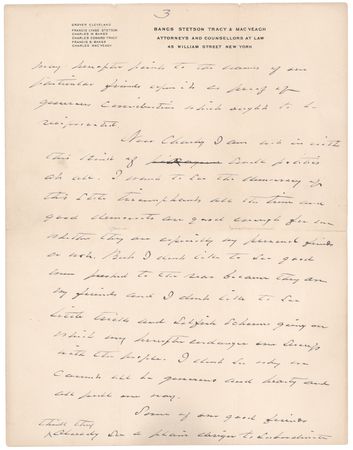 3
GROVER CLEVELAND
FRANCIS LYNDE STETSON
CHARLES W. BANGS
CHARLES EDWARD TRACY
FRANCIS S. BANGS
CHARLES MAC VEAGH
BANGS STETSON TRACY & MAC VEAGH
ATTORNEYS AND COUNSELLORS AT LAW
45 WILLIAM STREET NEW YORK
may perhaps point to the names of our
particular friends opposite as proof of
generous contribution which ought to be
reciprocated.
Now Charley I am not in with
this kind of politics
at all. I want to see the democracy of
this State triumphant all the time and
good democrats are good enough for me
whether they are especially my personal friends
or not. But I dont like to see good
men pushed to the rear because they are
my friends and I dont like to see
little tricks and selfish schemes going on
which may perhaps endanger our success
with the people. I dont see why we
cannot all be generous and hearty and
all pull one way.
Some of our good friends
think they
already see a plain design to subordinate